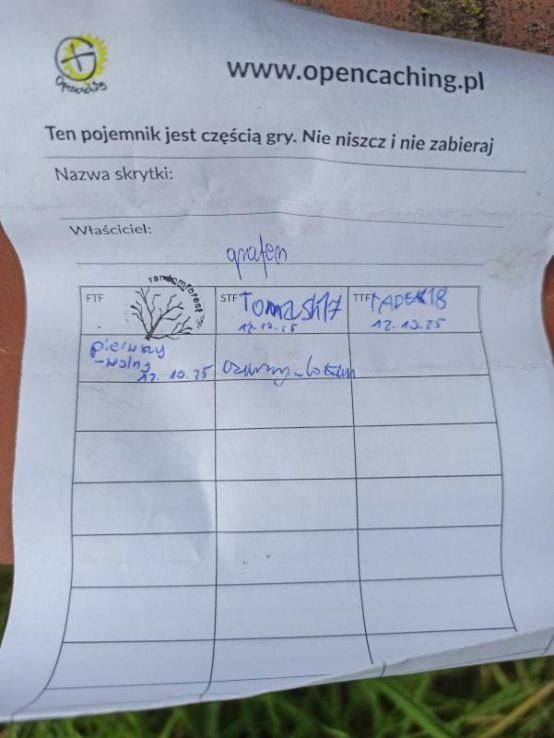 Opencaching
www.opencaching.pl
Ten pojemnik jest częścią gry. Nie niszcz i nie zabieraj
Nazwa skrytki:
Właściciel:
grafen
FTF
randomforest
STF Tomash17
12.10.25
TTF TADEK18
12.10.25
pierwszy
-wolny
12.10.25
czarny_